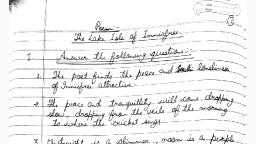 Poem:-
The Lake Isle of Innisfree.
I. Answer the following questions:-
1. The poet finds the peace and loneliness
of Innisfree attractive.
2. The peace and tranquility will come dropping
slow, dropping from the veils of the morning
to where the cricket sings.
3. Midnight is a glimmer, noon is a purple